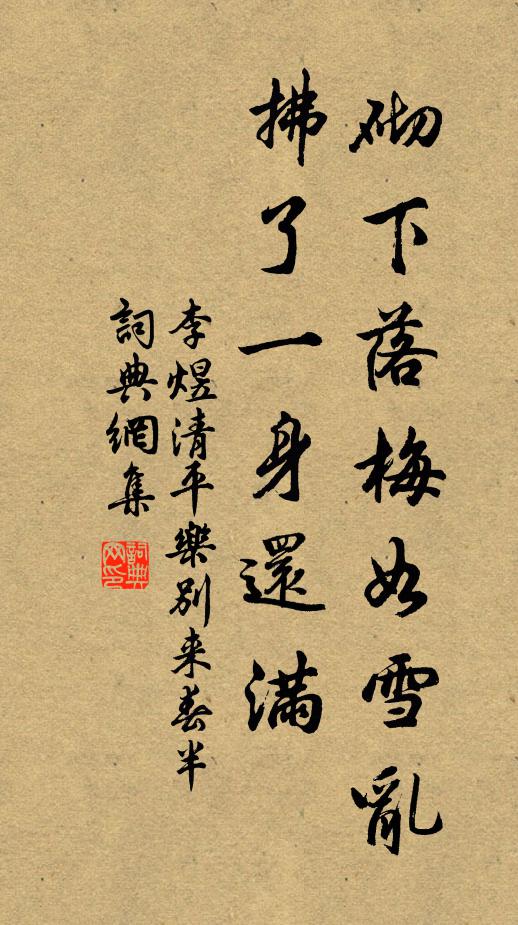 砌下落梅如雪亂
拂了一身還滿
李煜清平樂別来春半
詞典網集
詞典網印